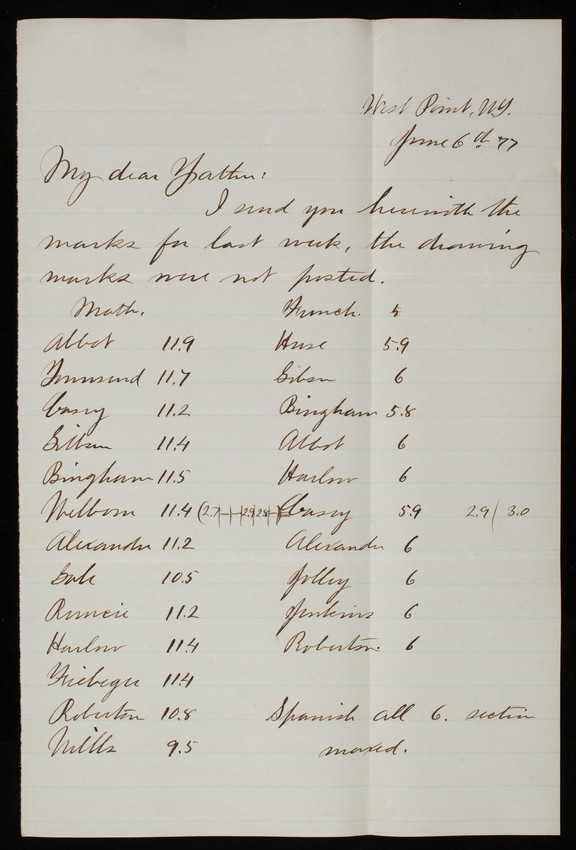 West Point, N.Y.
June 6th '77
My dear Father:
I send you herewith the
marks for last week, the drawing
marks were not posted.
Math. French.
Abbot 11.9 Huse 5.9
Townsend 11.7 Gibson 6
Casey 11.2 Bingham 5.8
Gibson 11.4 Abbot 6
Bingham 11.5 Harlow 6
Welborn 11.4 (2.7 2.9 2.8 Casey 5.9 2.9 3.0
Alexander 11.2 Alexander 6
Gale 10.5 Jolley 6
Runcie 11.2 Jenkins 6
Harlow 11.4 Roberton 6
Fiebeger 11.4
Roberton 10.8 Spanish all 6. section
Mills 9.5 maxed.